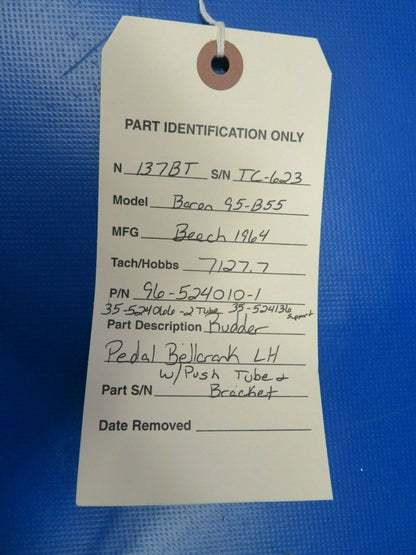 PART IDENTIFICATION ONLY
N 137BT S/N TC-623
Model Baron 95-B55
MFG Beech 1964
Tach/Hobbs 7127.7
P/N 96-524010-1
35-524066-2 Tube 35-524136 support
Part Description Rudder
Pedal Bellcrank LH
w/Push Tube &
Part S/N Bracket
Date Removed